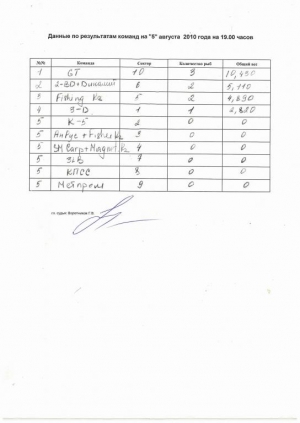 Данные по результатам команд на "5" августа 2010 года на 19.00 часов
№№ Команда Сектор Количество рыб Общий вес
1 GT 10 3 10,430
2 6 2 5,110
3 Fishing Kz 5 2 4,830
4 3-D 1 1 2,820
5 К-5 2 0 0
5 + Fisher Kz 3 0 0
5 Carp+Magnat Kz 4 0 0
5 7 0 0
5 КПСС 8 0 0
5 Метпром 9 0 0
гл. судья